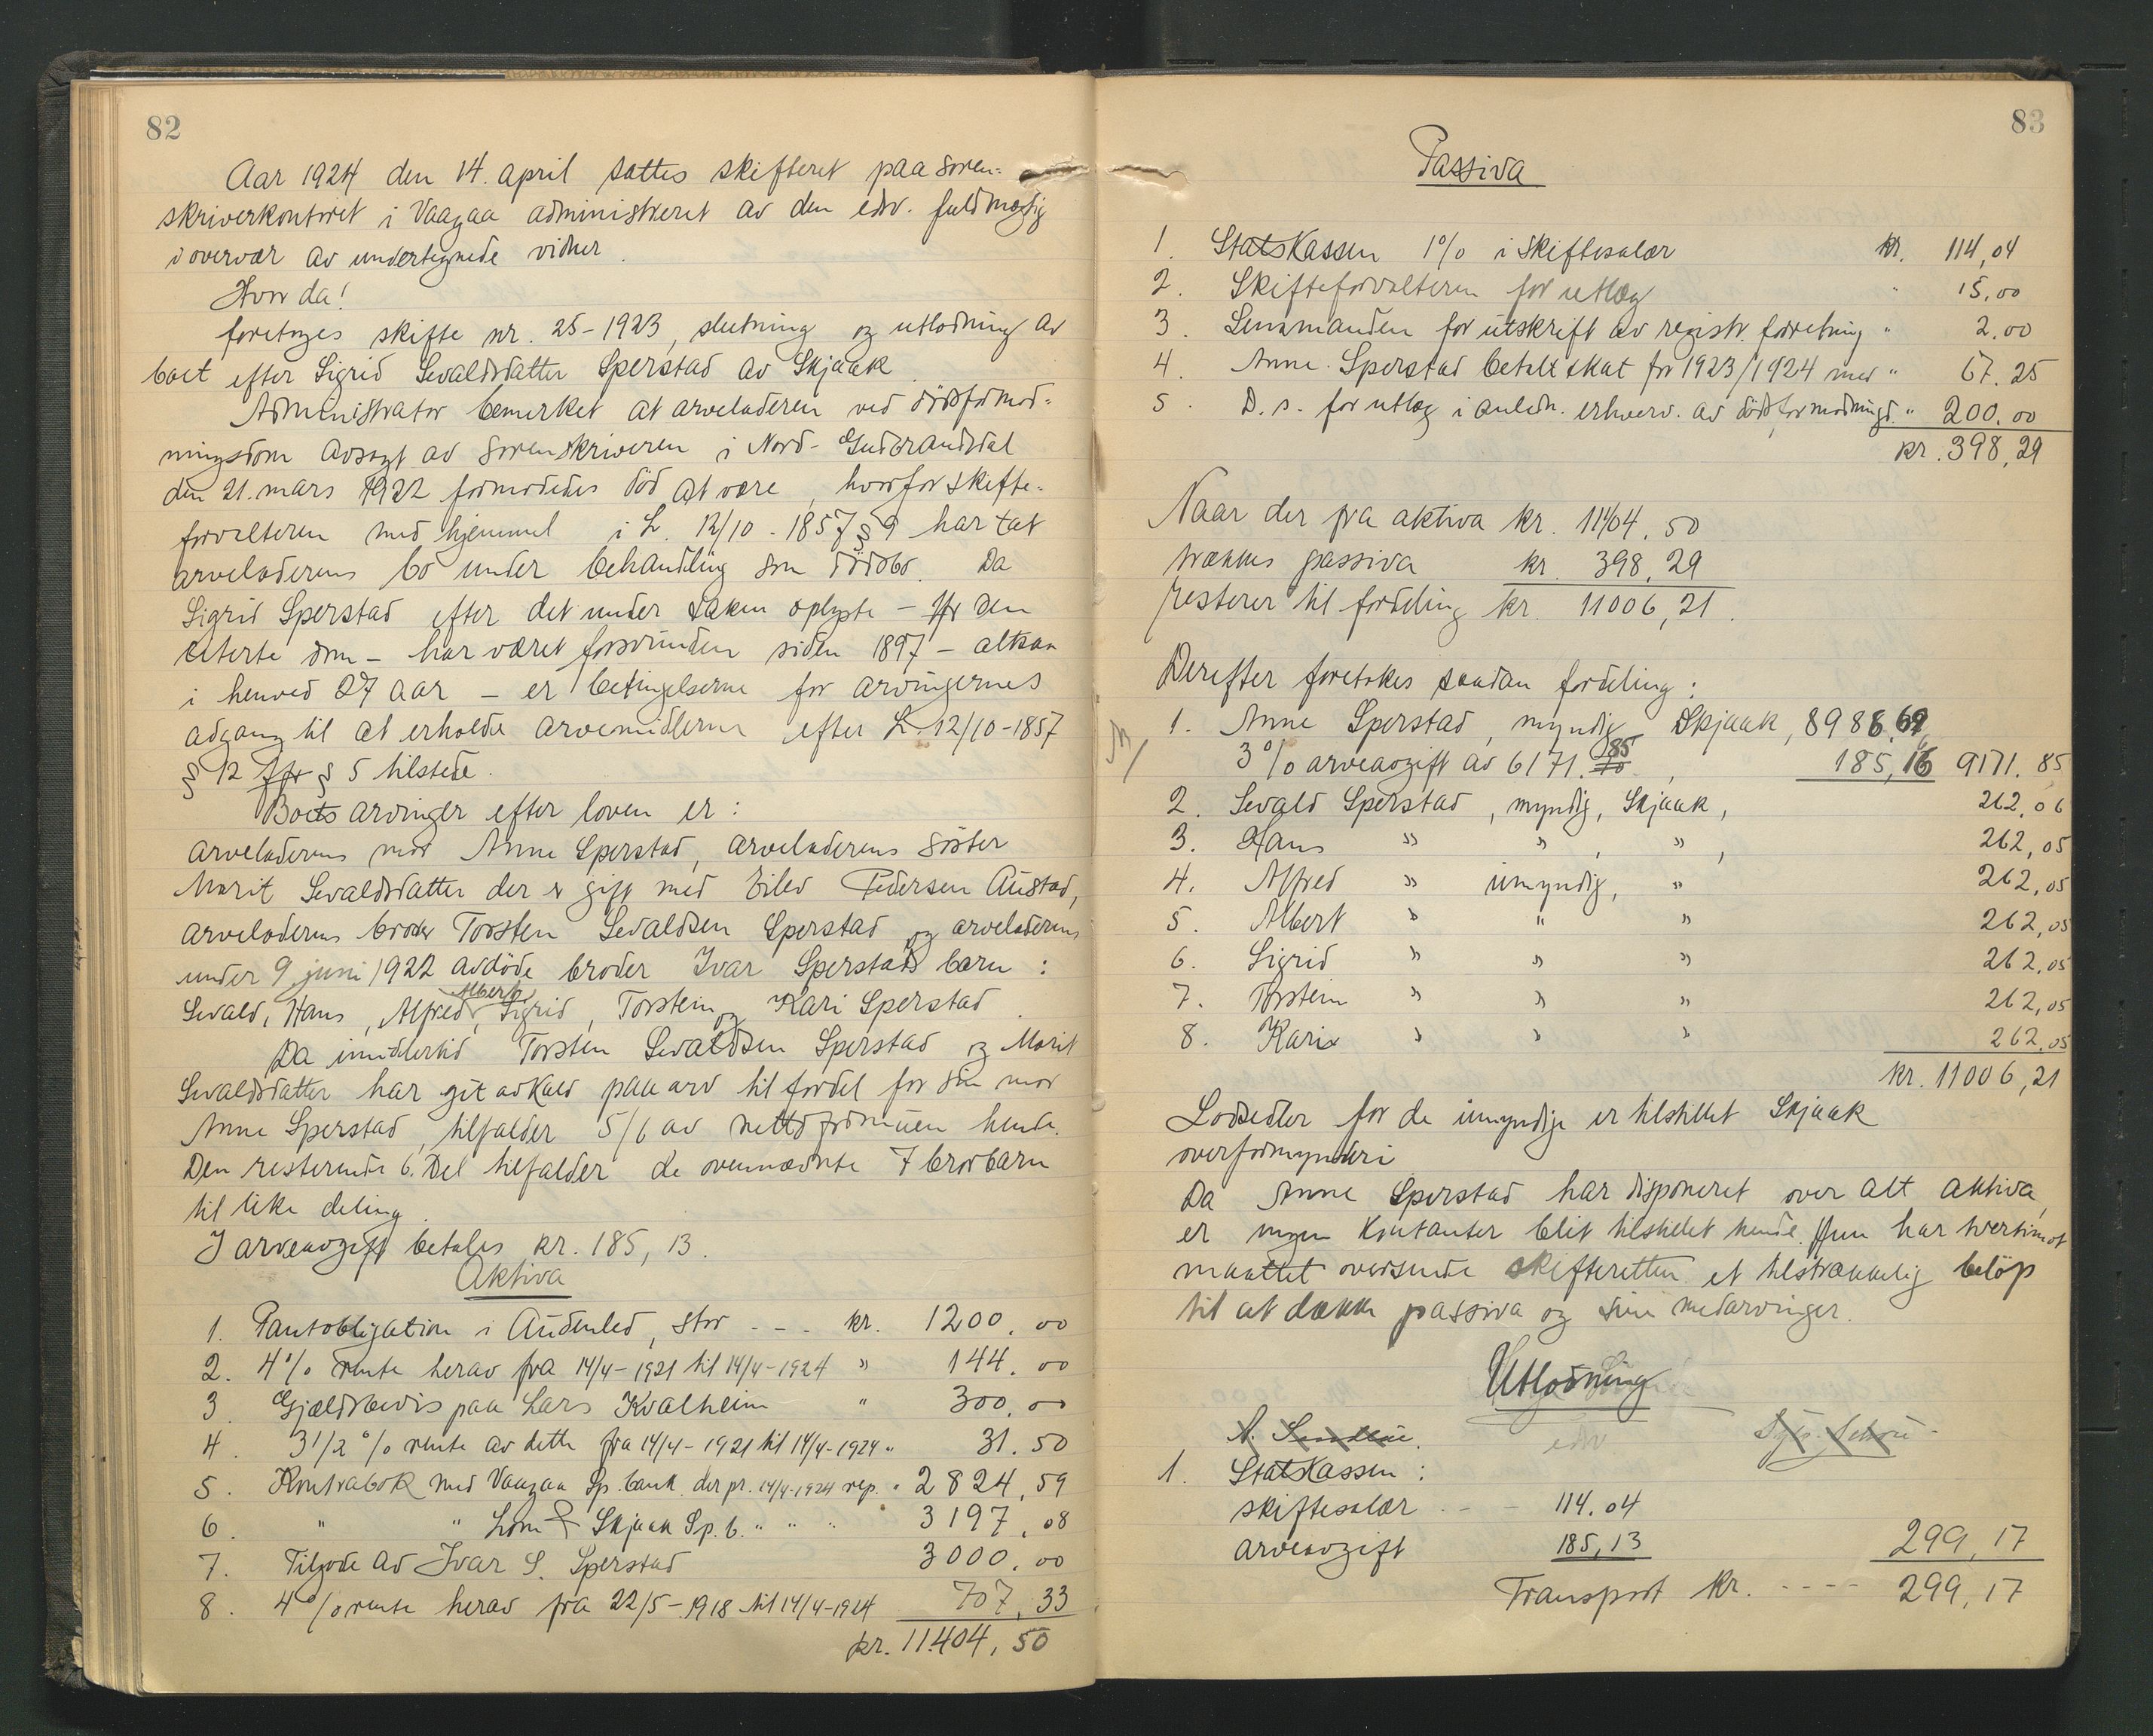 82
Aar 1924 den 14. april sattes skifteret paa soren-
skriverkontoret i Vaagaa administreret av den edsv. fuldmægtig
i overvær av undertegnede vidner.
Hvor da!
foretoges skifte nr. 25-1923, slutning og utlodning av
boet efter Sigrid Sevaldsdatter Sperstad av Skjaak.
Administrator bemerket at arveladeren ved dödsformod-
ningsdom avsagt av sorenskriveren i Nord-Gudbrandsdal
den 21. mars 1922 formodedes död at være, hvorfor skifte-
forvalteren med hjemmel i L. 12/10-1857 § 9 har tat
arveladerens bo under behandling som dödsbo. Da
Sigrid Sperstad efter det under saken oplyste - jfr den
citerte dom - har været forsvunden siden 1897 - altsaa
i henved 27 aar - er betingelserne for arvingernes
adgang til at erholde arvemidlerne efter L. 12/10-1857
§ 12 jfr § 5 tilstede.
Boets arvinger efter loven er:
arveladerens mor Anne Sperstad, arveladerens søster
Marit Sevaldsdatter der er gift med Eilev Pedersen Austad,
arveladerens broder Torsten Sevaldsen Sperstad og arveladerens
under 9. juni 1922 avdöde broder Ivar Sperstads barn:
Albert,
Sevald, Hans, Alfred, Sigrid, Torstein og Kari Sperstad.
Da imidlertid Torsten Sevaldsen Sperstad og Marit
Sevaldsdatter har git avkald paa arv til fordel for sin mor
Anne Sperstad, tilfalder 5/6 av nettoformuen hende.
Den resterende 6. Del tilfalder de ovennævnte 7 brorbarn
til like deling.
I arveavgift betales kr. 185,13.
Aktiva
1. Pantobligation i Audenled, stor - - - kr. 1200.00
2. 4% rente herav fra 14/4-1921 til 14/4-1924 " 144.00
3. Gjældsbevis paa Lars Kvalheim " 300.00
4. 3 1/2 % rente av dette fra 14/4-1921 til 14/4-1924 " 31.50
5. Kontrabok med Vaagaa Sp.bank der pr. 14/4-1924 rep. " 2824,59
6. " " Lom & Skjaak Sp. b. " " " 3197,08
7. Tilgode av Ivar S. Sperstad 3000.00
8. 4% rente herav fra 22/5-1918 til 14/4-1924 707,33
kr. 11404,50
83
Passiva
1. Statskassen 1% i skiftesalær kr. 114,04
2. Skifteforvalteren for utlæg " 15.00
3. Lensmanden for utskrift av registr. forretning " 2.00
4. Anne Sperstad betalt skat for 1923/1924 med " 67.25
5. D. s. for utlæg i anledn. erhverv. av dödsformodningsd. " 200.00
kr. 398,29
Naar der fra aktiva kr. 11404.50
trækkes passiva kr. 398,29
resterer til fordeling kr. 11006,21.
Derefter foretakes saadan fordeling:
1. Anne Sperstad, myndig, Skjaak, 8986,69
85
3% arveavgift av 6171.70, 185,16 9171.85
2. Sevald Sperstad, myndig, Skjaak, 262,06
3. Hans " " , " , 262,05
4. Alfred " umyndig, " 262,05
5. Albert " " " 262,05
6. Sigrid " " " 262,05
7. Torstein " " " 262,05
8. Kari " " " 262,05
kr. 11006,21
Lodsedler for de umyndige er tilstillet Skjaak
overformynderi
Da Anne Sperstad har disponeret over alt aktiva
er ingen kontanter blit tilstillet hende. Hun har tvertimot
maattet oversende skifteretten et tilstrækkelig beløp
til at dække passiva og sine medarvinger.
Utlodning
edsv
1. Statskassen:
skiftesalær - - - 114.04
arveavgift 185,13 299,17
Transport kr. - - - - 299,17